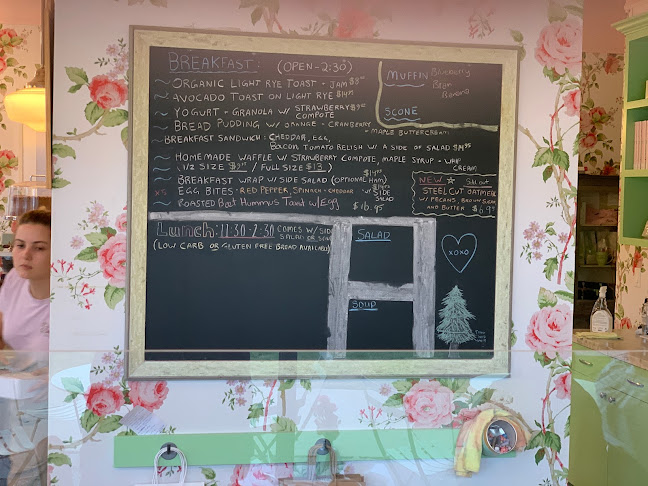 BREAKFAST: (OPEN-2:30)
ORGANIC LIGHT RYE TOAST - JAM
AVOCADO TOAST ON LIGHT RYE
YOGURT - GRANOLA W/ STRAWBERRY
COMPOTE
BREAD PUDDING W/ ORANGE - CRANBERRY
- MAPLE BUTTERCREAM
BREAKFAST SANDWICH: CHEDDAR, EGG,
BACON, TOMATO RELISH W/ A SIDE OF SALAD
HOMEMADE WAFFLE W/ STRAWBERRY COMPOTE, MAPLE SYRUP - WHIP
CREAM
(1/2 SIZE / FULL SIZE $13)
BREAKFAST WRAP W/ SIDE SALAD (OPTIONAL HAM)
EGG BITES - RED PEPPER, SPINACH - CHEDDAR
SIDE
SALAD
ROASTED Beet Hummus Toast w/Egg $16.95
MUFFIN Blueberry
Banana
SCONE
NEW Sold out
STEEL CUT OATMEAL
W/ PECANS, BROWN SUGAR
AND BUTTER
Lunch: 11:30-2:30 COMES W/ SIDE
SALAD OR SOUP
(LOW CARB OR GLUTEN FREE BREAD AVAILABLE)
SALAD
XOXO
SOUP